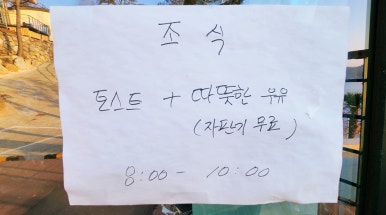 조식
토스트 + 따뜻한 우유
(자판기 무료)
8:00 - 10:00